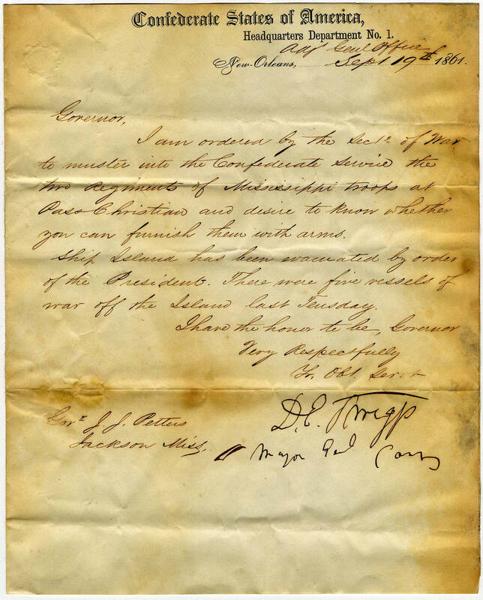 Confederate States of America,
Headquarters Department No. 1.
Adjt Genl Office
New-Orleans, Sept 19th 1861.
Governor,
I am ordered by the Secty of War
to muster into the Confederate service the
two Regiments of Mississippi troops at
Pass Christian and desire to know whether
you can furnish them with arms.
Ship Island has been evacuated by order
of the President. There were five vessels of
war off the Island last Tuesday
I have the honor to be, Governor
Very Respectfully
Yr. Obt Servt
D. E. Twiggs
Major Genl Comg
Govr J. J. Pettus
Jackson Miss.